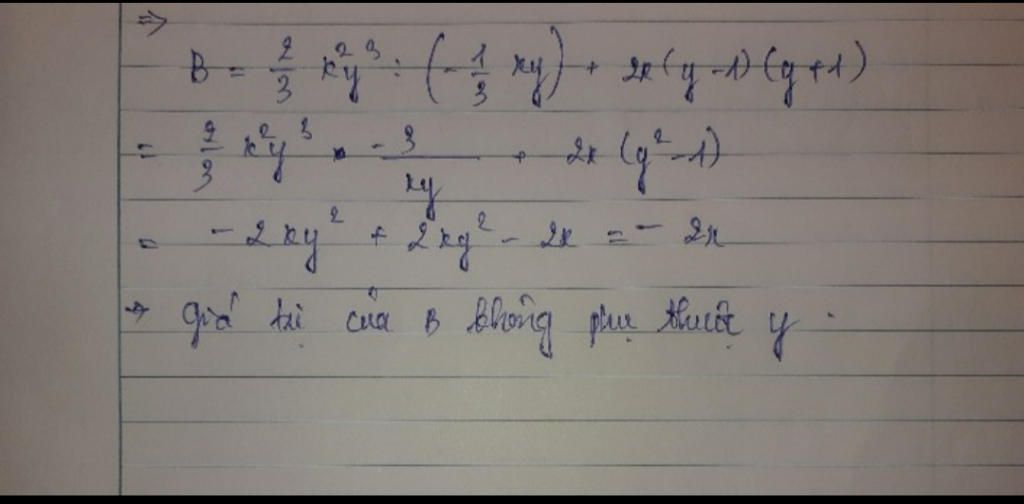 ⇒
B = 2/3 x²y³ : (-1/3 xy) + 2x(y-1)(y+1)
= 2/3 x²y³ · -3/xy + 2x (y²-1)
= -2xy² + 2xy² - 2x = - 2x
→ giá trị của B không phụ thuộc y .